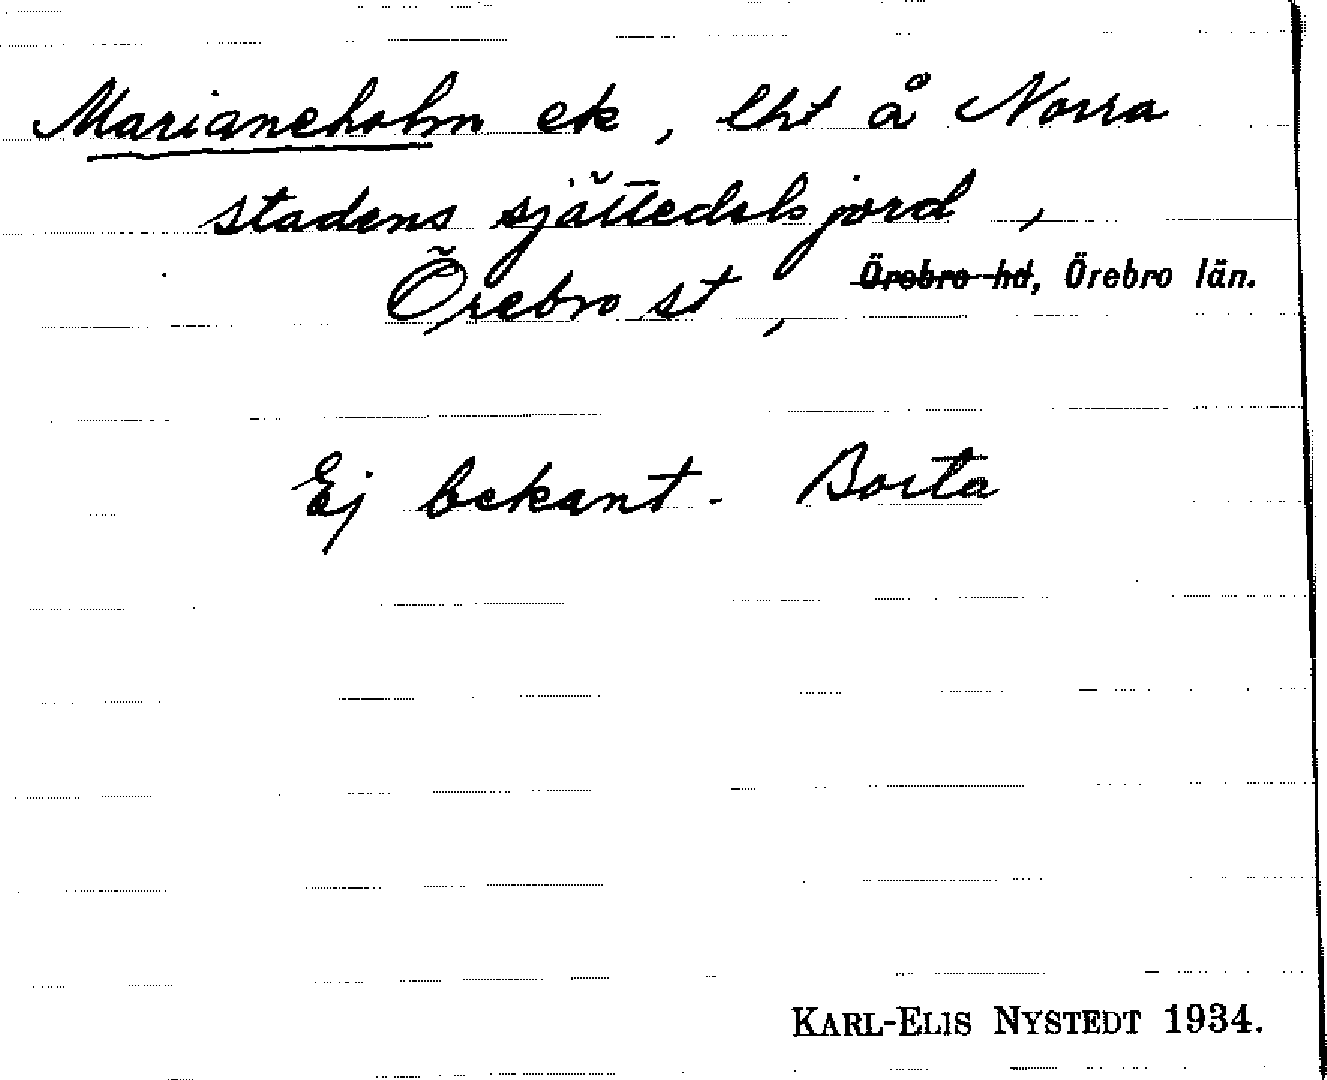 Marianeholm ek, lht å Norra
stadens sjättedelsjord,
Örebro st, Örebro hd, Örebro län.
Ej bekant. Borta
KARL-ELIS NYSTEDT 1934.